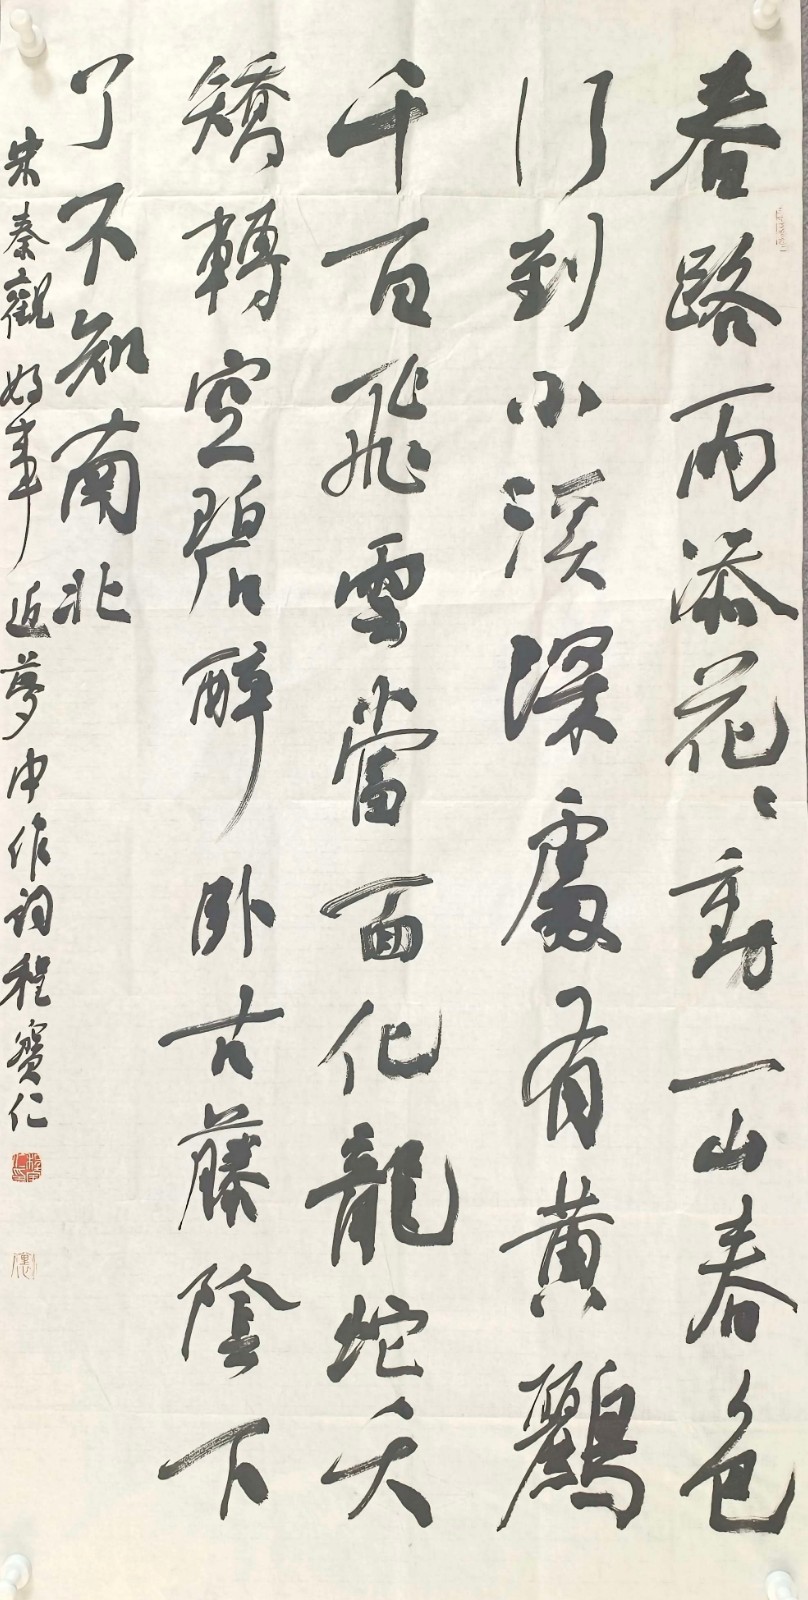 春路雨添花〻動一山春色
行到小溪深處有黃鸝
千百飛雲當面化龍蛇夭
矯轉空碧醉卧古藤陰下
了不知南北
宋秦觀好事近夢中作詞程寶仁